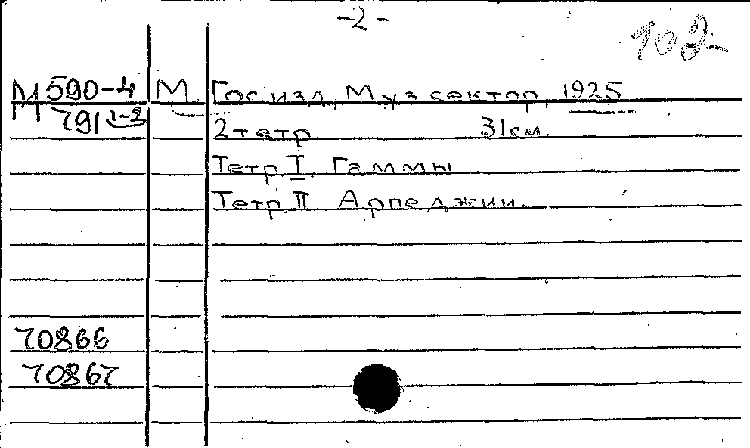 -2-
102
М 590-4 М. Гос. изд. Муз сектор, 1925
791 1-2
2 тетр 31 см.
Тетр I. Гаммы
Тетр II Арпеджии.
70866
70867